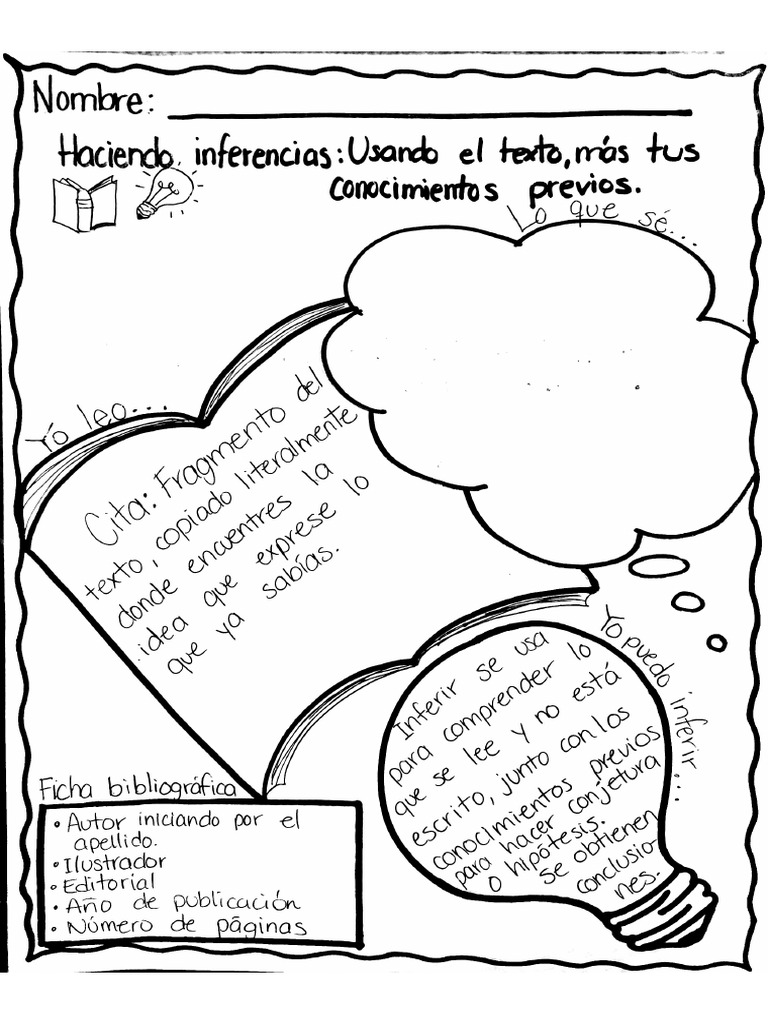 Nombre:
Haciendo inferencias: Usando el texto, más tus
conocimientos previos.
Lo que sé...
Yó leo...
Cita: Fragmento del
texto, copiado literalmente
donde encuentres la
idea que exprese lo
que ya sabías.
Yo puedo inferir...
Inferir se usa
para comprender lo
que se lee y no está
escrito, junto con los
conocimientos previos
para hacer conjetura
o hipótesis.
se obtienen
conclusio-
nes.
Ficha bibliográfica
• Autor iniciando por el
apellido.
• Ilustrador
• Editorial
• Año de publicación
• Número de páginas